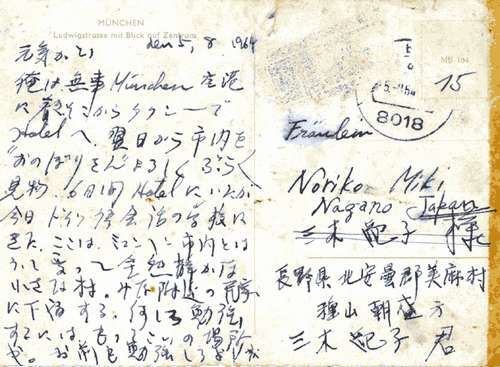 MÜNCHEN
Ludwigstrasse mit Blick auf Zentrum
den 5, 8 1964
元気かい
俺は無事München 空港
に着きそれからタクシーで
Hotelへ、翌日から市内を
おのぼりさんよろしくぶらぶら
見物、6日間Hotelにいたが
今日ドイツ語会話の学校に
きた、ここは、ミュンヘン市内とは
うって変って全然静かな
小さな村。
に下宿する。何しろ勉強
するには、もってこいの場所
や。お前も勉強しろ
MÜ 104
15
8018
Fräulein
Noriko Miki
Nagano Japan
三木 紀子 様
長野県北安曇郡美麻村
三木 紀子 君